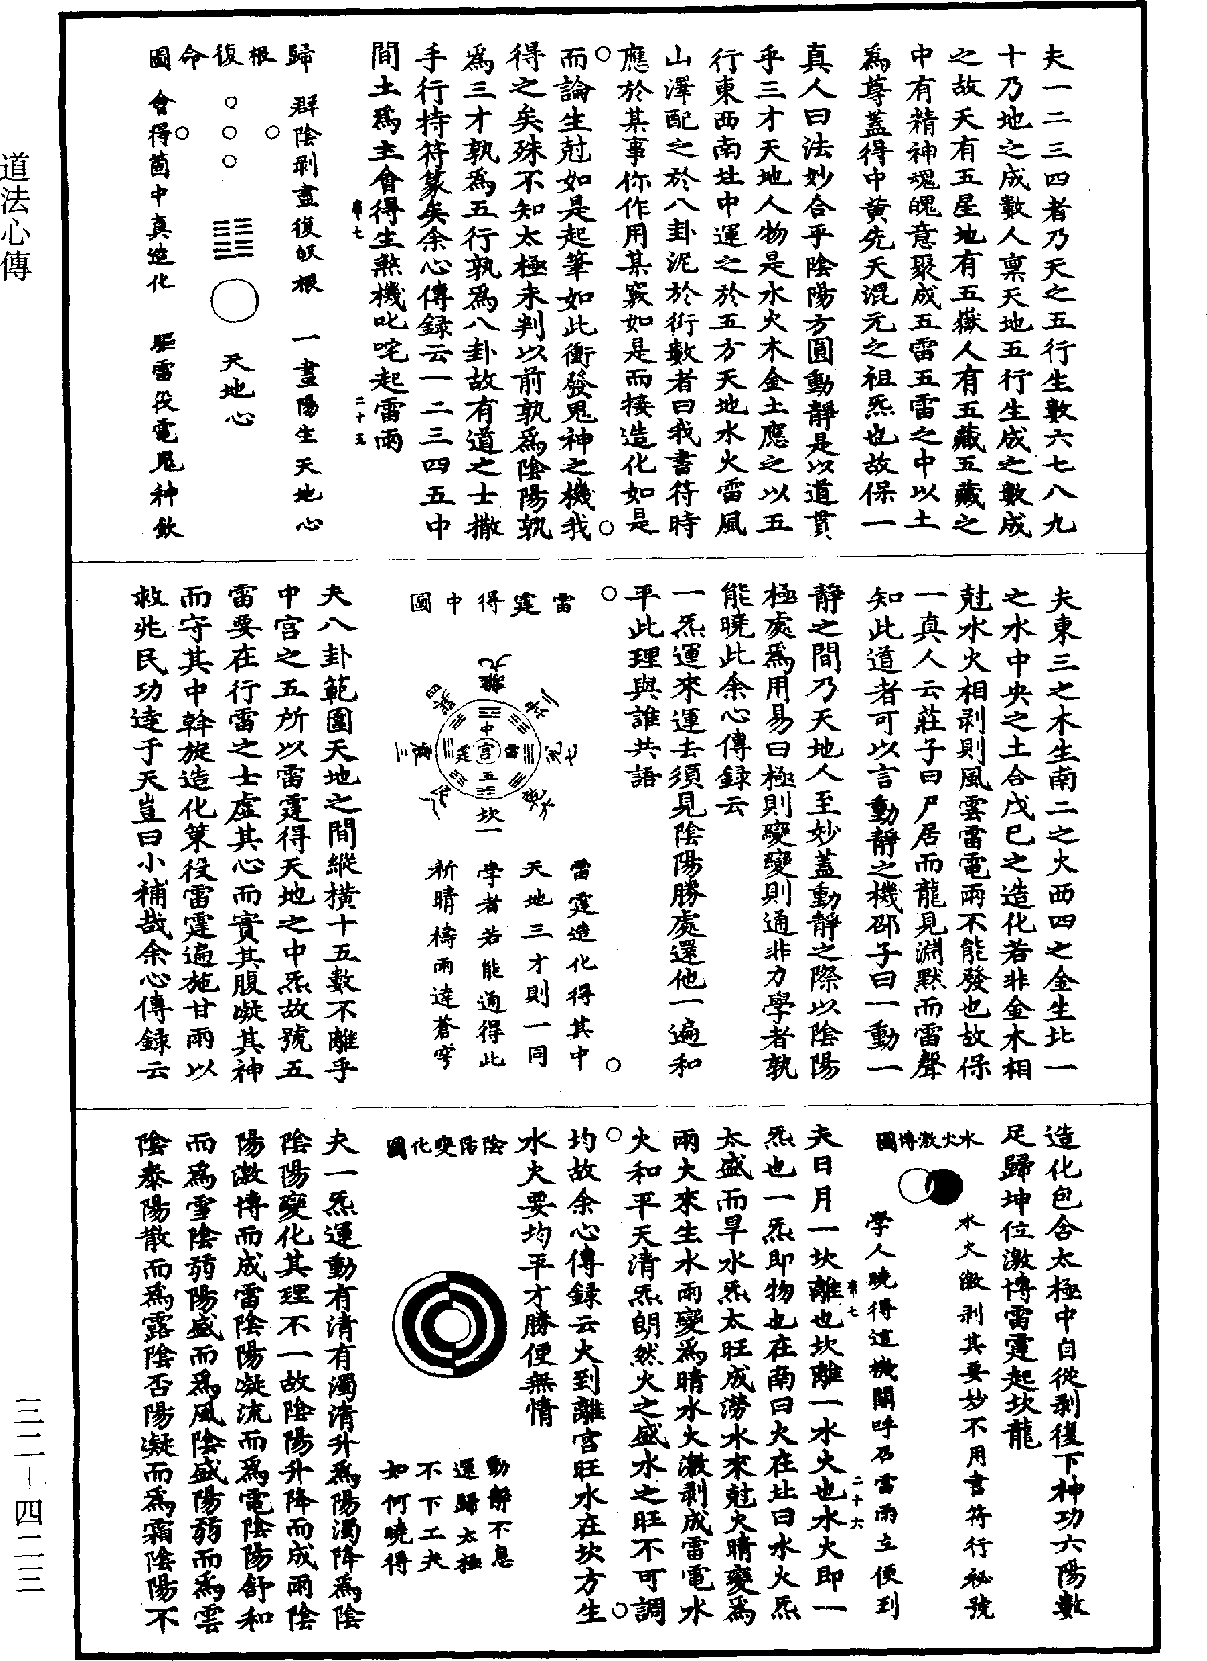 道法心傳
夫一二三四者乃天之五行生數六七八九
十乃地之成數人稟天地五行生成之數成
之故天有五星地有五嶽人有五藏五藏之
中有精神魂魄意聚成五雷五雷之中以土
為尊蓋得中黃先天混元之祖炁也故保一
真人曰法妙合乎陰陽方圓動靜是以道貫
乎三才天地人物是水火木金土應之以五
行東西南北中運之於五方天地水火雷風
山澤配之於八卦泥於術數者曰我書符時
應於某事你作用某竅如是而接造化如是
而論生尅如是起筆如此衝發鬼神之機我
得之矣殊不知太極未判以前孰為陰陽孰
為三才孰為五行孰為八卦故有道之士撒
手行持符篆矣余心傳録云一二三四五中
間土為主會得生煞機叱咤起雷雨
歸根復命圖
群陰剥盡復皈根 一畫陽生天地心
天地心
會得箇中真造化 驅雷役電鬼神欽
夫東三之木生南二之火西四之金生北一
之水中央之土合戊己之造化若非金木相
尅水火相剥則風雲雷電雨不能發也故保
一真人云莊子曰尸居而龍見淵默而雷聲
知此道者可以言動靜之機邵子曰一動一
靜之間乃天地人至妙蓋動靜之際以陰陽
極處為用易曰極則變變則通非力學者孰
能曉此余心傳録云
一炁運來運去須見陰陽勝處還他一遍和
平此理與誰共語
雷霆得中圖
離九
坎一
中宮五
雷霆造化得其中
天地三才則一同
學者若能通得此
祈晴禱雨達蒼穹
夫八卦範圍天地之間縱橫十五數不離乎
中宮之五所以雷霆得天地之中炁故號五
雷要在行雷之士虛其心而實其腹凝其神
而守其中斡旋造化策役雷霆遍施甘雨以
救兆民功達于天豈曰小補哉余心傳録云
造化包含太極中自從剥復下神功六陽數
足歸坤位激博雷霆起坎龍
水火激博圖
水火激剥其要妙不用書符行祕號
學人曉得這機關呼召雷雨立便到
夫日月一坎離也坎離一水火也水火即一
炁也一炁即物也在南曰火在北曰水火炁
太盛而旱水炁太旺成澇水來尅火晴變為
雨火來生水雨變為晴水火激剥成雷電水
火和平天清炁朗然火之盛水之旺不可調
均故余心傳録云火到離宮旺水在坎方生
水火要均平才勝便無情
陰陽變化圖
動靜不息
還歸太極
不下工夫
如何曉得
夫一炁運動有清有濁清升為陽濁降為陰
陰陽變化其理不一故陰陽升降而成雨陰
陽激博而成雷陰陽凝流而為電陰陽舒和
而為雪陰弱陽盛而為風陰盛陽弱而為雲
陰泰陽散而為露陰否陽凝而為霜陰陽不
三二－四二三